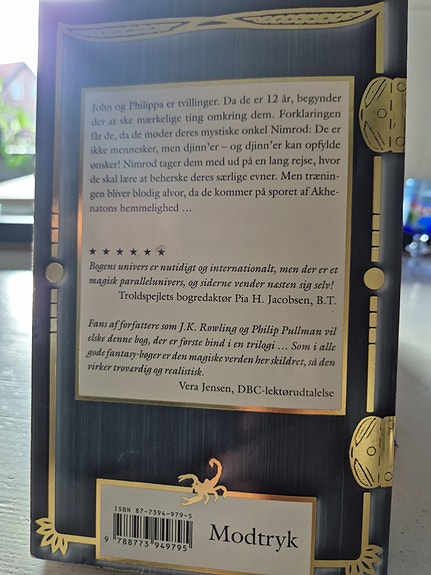 John og Philippa er tvillinger. Da de er 12 år, begynder
der at ske mærkelige ting omkring dem. Forklaringen
får de, da de møder deres mystiske onkel Nimrod: De er
ikke mennesker, men djinn'er – og djinn'er kan opfylde
ønsker! Nimrod tager dem med ud på en lang rejse, hvor
de skal lære at beherske deres særlige evner. Men trænin-
gen bliver blodig alvor, da de kommer på sporet af Akhe-
natons hemmelighed ...
★ ★ ★ ★ ★ ★
Bogens univers er nutidigt og internationalt, men der er et
magisk parallelunivers, og siderne vender næsten sig selv!
Troldspejlets bogredaktør Pia H. Jacobsen, B.T.
Fans af forfattere som J.K. Rowling og Philip Pullman vil
elske denne bog, der er første bind i en trilogi ... Som i alle
gode fantasy-bøger er den magiske verden her skildret, så den
virker troværdig og realistisk.
Vera Jensen, DBC-lektørudtalelse
ISBN 87-7394-979-5
9 788773 949795
Modtryk